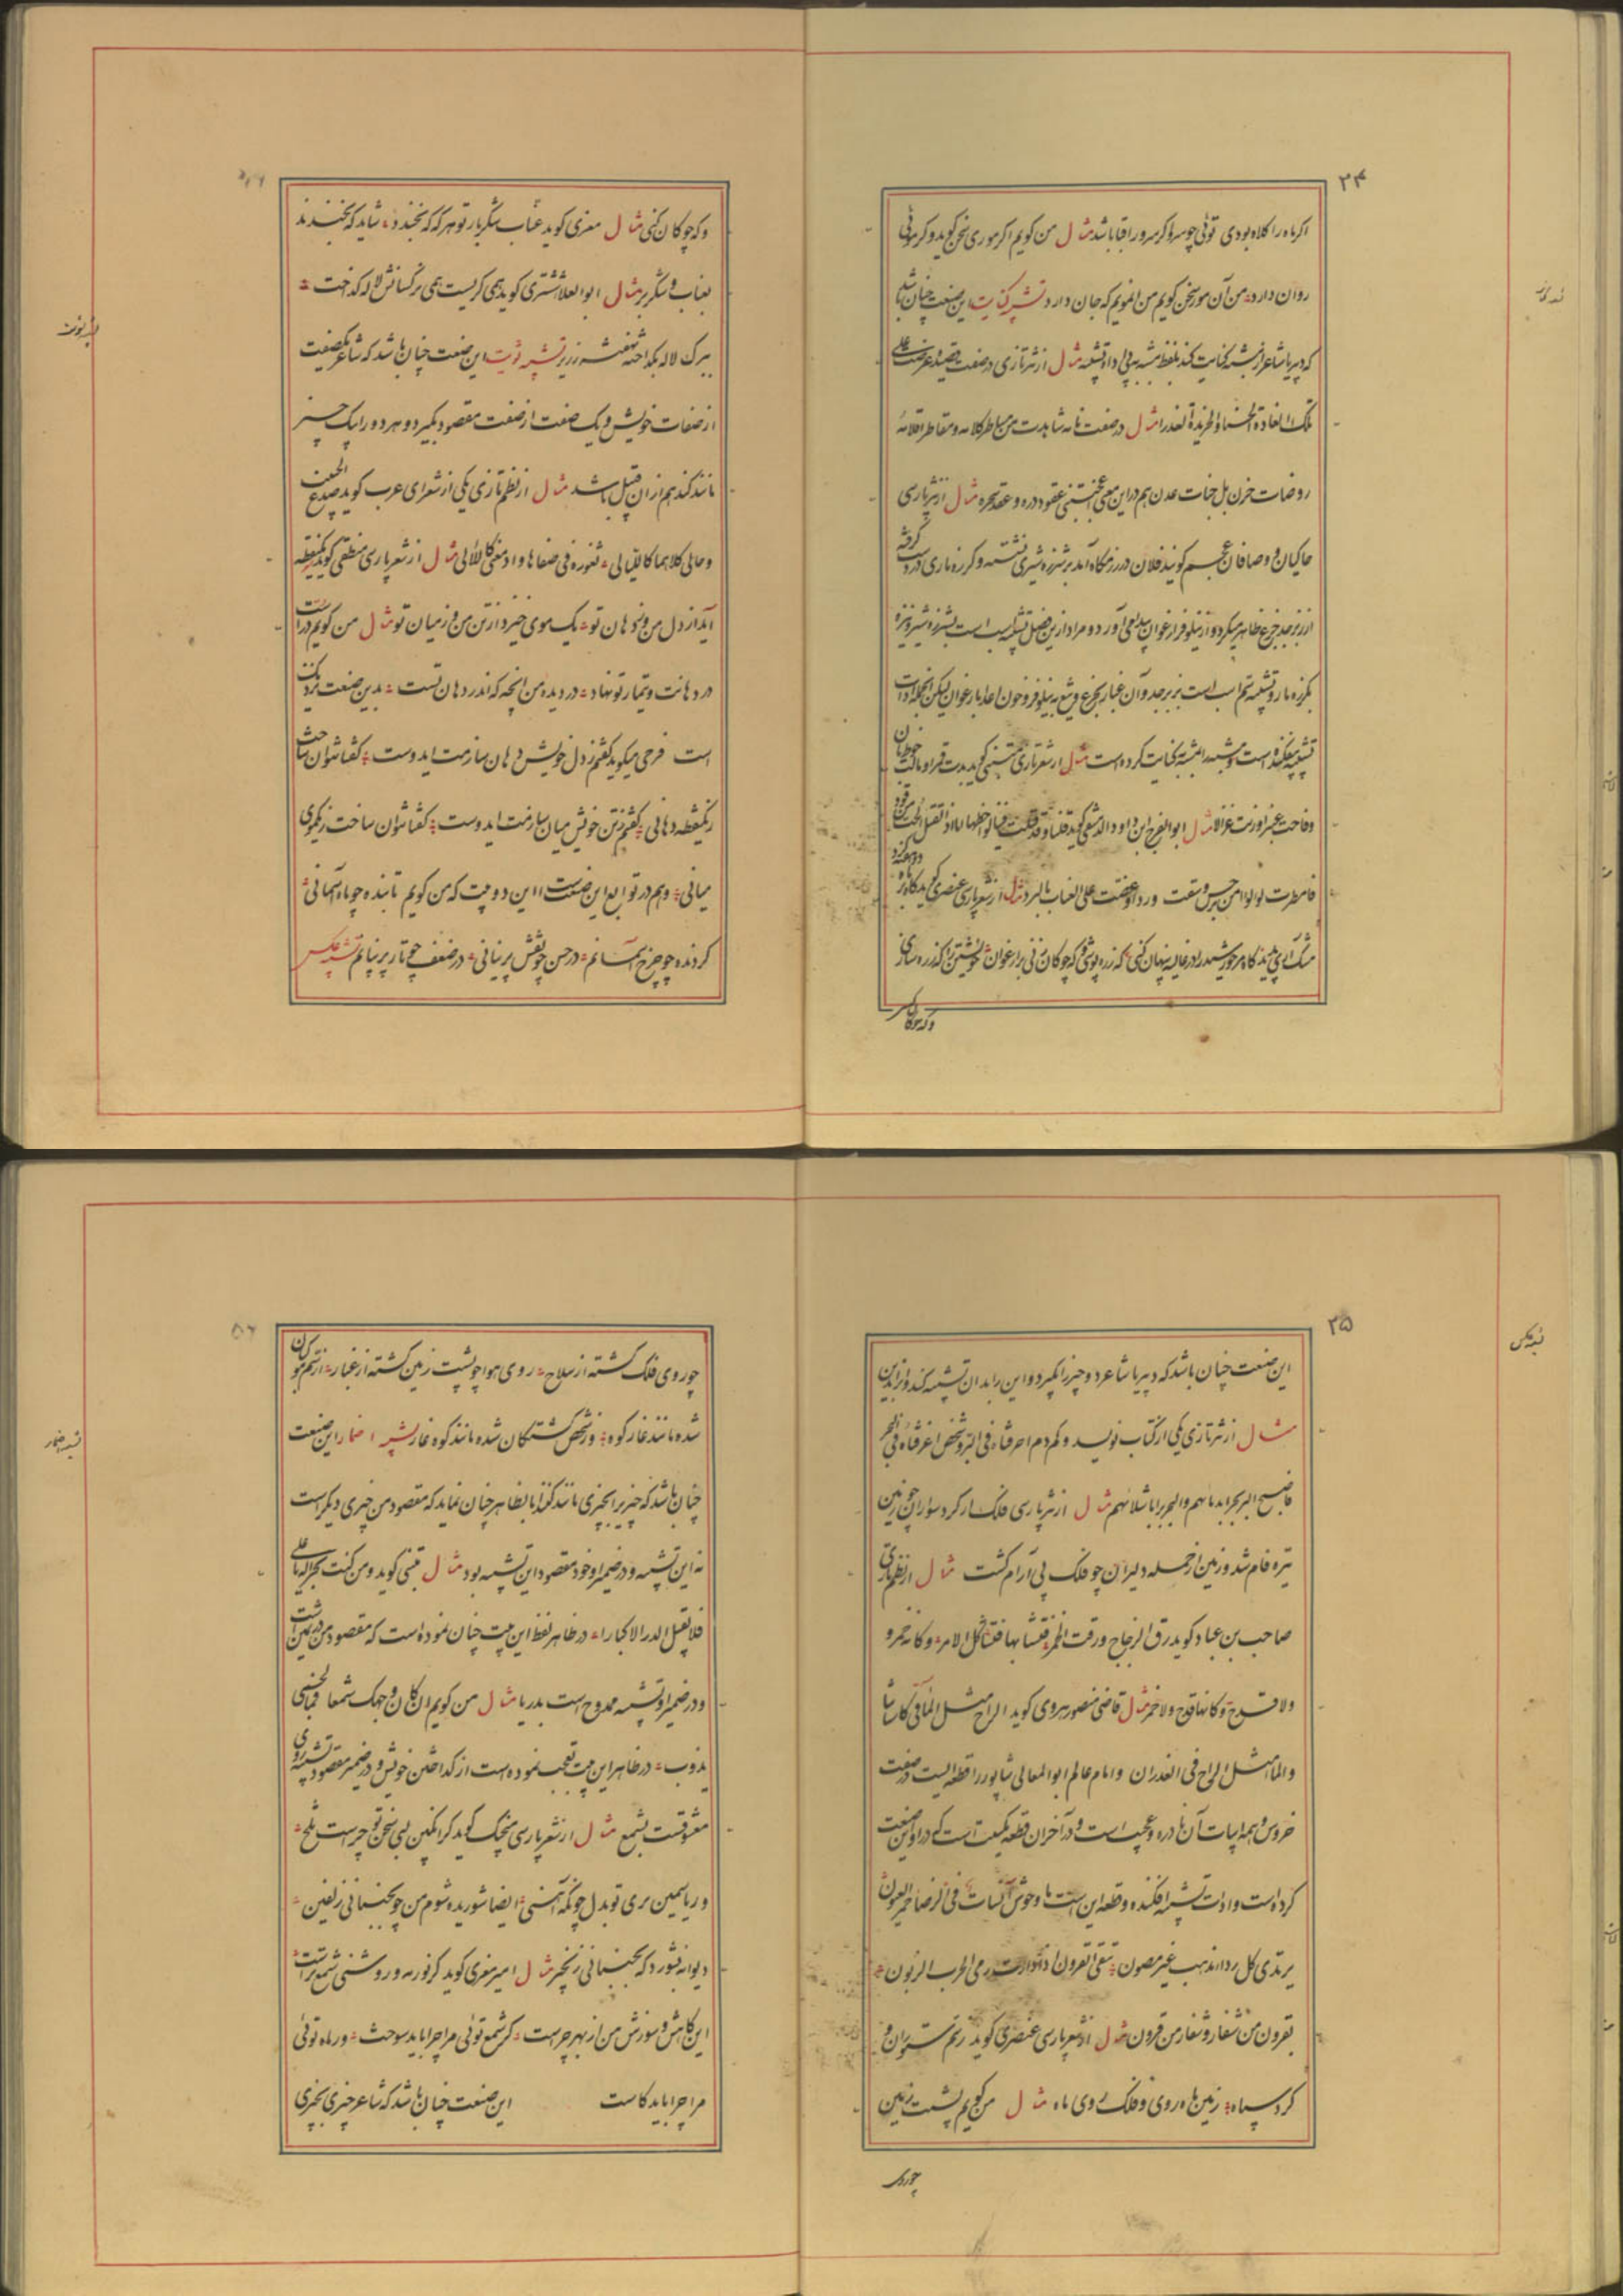 ۲۴
اگر ماه را کلاه بودی توئی چو سرو اگر سرو را قبا باشد مثال من گویم اگر موری سخن گوید و گر موئی
روان دارد من آن مور سخن گویم من آنمویم که جان دارد تشبیه کنایت این صنعت چنان باشد
که دبیر یا شاعر از مشبه کنایت کند بلفظ مشبه به بی ادات تشبیه مثال از نثر تازی در صفت قصیده عرضت علی
تلک الغادة الحسنا والخریدة العذرا مثال در صفت نامه شاهدت من مساطر کلامه و مقاطر اقلامه
روضات حزن بل جنات عدن هم در این معنی عقود دره و عقد سحره مثال از نثر پارسی
حاکیان و وصافان عجم گویند فلان در رزمگاه آمد بر شرزه شیری نشسته و گرزه ماری در دست گرفته
از زبرجد جزع ظاهر میکرد و از نیلوفر ارغوان پدید می آورد و مراد ازین فصل تشبیه اسب است بشرزه شیر و نیزه
بگرزه مار و تشبیه سم اسب است بزبرجد و آن غبار بجزع و تیغ به نیلوفر و خون اعدا بارغوان لیکن ادات
تشبیه بیفکنده است و مشبه را بمشبه به کنایت کرده است مثال از شعر تازی متنبی گوید بدت قمرا و مالت خوط بان
وفاحت عنبرا ورنت غزالا مثال ابوالفرج ابن داود الدمشقی گوید قلنا وقد فتکت فینا لواحظها
فامطرت لؤلؤا من نرجس وسقت وردا وعضت علی العناب بالبرد مثال از شعر پارسی عنصری گوید گاه بر ماه دو هفته گرد
مشک آری پدید گاه مر خورشید را در غالیه پنهان کنی که زره پوشی و گه چوگان زنی بر ارغوان خویشتن را گه زره سازی
و گه چوگان
و گه چوگان کنی مثال معزی گوید عناب شکربار تو هر گه که بخندد شاید که بخندند
بعناب و شکر بر مثال ابوالعلا شتری گوید همی گریست همی نرگسانش لاله گداخت
ببرگ لاله بگداخته بنفشه زریر تشبیه تسویت این صنعت چنان باشد که شاعر یکصفت
از صفات خویش و یک صفت از صفت مقصود بگیرد و هر دو را بیک چیز
مانند کند هم از ان قبیل باشد مثال از نظم تازی یکی از شعرای عرب گوید صدغ الحبیب
وحالی کلاهما کاللیالی ثغوره فی صفا ها و ادمعی کاللآلی مثال از شعر پارسی منطقی گوید یکنقطه
آید از دل من وز دهان تو یک موی خیزد از تن من وز میان تو مثال من گویم در است
در دهانت و تیمار تو نهاد در دیده من آنچه که اندر دهان تست بدین صنعت نزدیک
است فرخی میگوید گفتم ز دل خویش دهان سازمت ایدوست گفتا نتوان ساخت
زیکنقطه دهانی گفتم ز تن خویش میان سازمت ایدوست گفتا نتوان ساخت ز یکموی
میانی و هم در توابع این صنعت است این دو بیت که من گویم تابنده چو ماه آسمانی
گردنده چو چرخ آسمانم در حسن چو نقش پرنیانی در ضعف چو تار پرنیانم تشبیه عکس
۲۵
این صنعت چنان باشد که دبیر یا شاعر دو چیز را بگیرد و این را بدان تشبیه کند و آنرا بدین
مثال از نثر تازی یکی از کتاب نویسد و کم دم احرقناه فی البر و شخص اغرقناه فی البحر
فاصبح البر بحرا بدمائهم والبحر برا باشلائهم مثال از نثر پارسی فلک از گرد سواران چون زمین
تیره فام شد و زمین از حمله دلیران چو فلک بی آرام گشت مثال از نظم تازی
صاحب بن عباد گوید رق الزجاج ورقت الخمر فتشابها فتشاکل الامر وکانه خمر و
ولا قدح وکانها قدح ولا خمر مثال قاضی منصور هروی گوید الراح مثل الماء فی کاساتنا
والماء مثل الراح فی الغدران و امام عالم ابوالمعالی شاپور را قطعه ایست در صفت
خروس و همه ابیات آن نادره و عجیب است و در آخر آن قطعه یک بیت است که در او این صنعت
کرده است و ادات تشبیه افکنده و قطعه این است
یرتدی کل رداء مذهب غیر مصون یتقی القرون
بقرون من شفار و شفار من قرون مثال از شعر پارسی عنصری گوید ز سم ستوران و
گرد سپاه زمین ماه روی و فلک روی ماه مثال من گویم پشت زمین
چو روی
چو روی فلک گشته از سلاح روی هوا چو پشت زمین گشته از غبار از سم مرکبان
شده مانند غار کوه وز شخص کشتگان شده مانند کوه غار تشبیه اضمار این صنعت
چنان باشد که چیز را بچیزی مانند کند اما بظاهر چنان نماید که مقصود من چیزی دیگر است
نه این تشبیه و در ضمیر او خود مقصود این تشبیه بود مثال متنبی گوید ومن کنت بحرا له یا علی
فلا یقبل الدر الا کبارا در ظاهر لفظ این بیت چنان نموده است که مقصود من
و در ضمیر او تشبیه ممدوح است بدریا مثال من گویم ان کان وجهک شمعا فما لجسمی
یذوب در ظاهر این بیت تعجب نموده است از گداختن خویش و در ضمیر مقصود تشبیه روی
معشوقست بشمع مثال از شعر پارسی منجیک گوید گر انگبین لبی سخن تو چراست تلخ
ور یاسمین بری تو بدل چونکه آهنی ایضا شوریده شوم من چو بجنبانی زلفین
دیوانه بشورد که بجنبانی زنجیر مثال امیر معزی گوید گر نور مه و روشنی شمع تراست
این کاهش و سوزش من از بهر چراست گر شمع توئی مرا چرا باید سوخت ور ماه توئی
مرا چرا باید کاست این صنعت چنان باشد که شاعر چیزی بچیزی